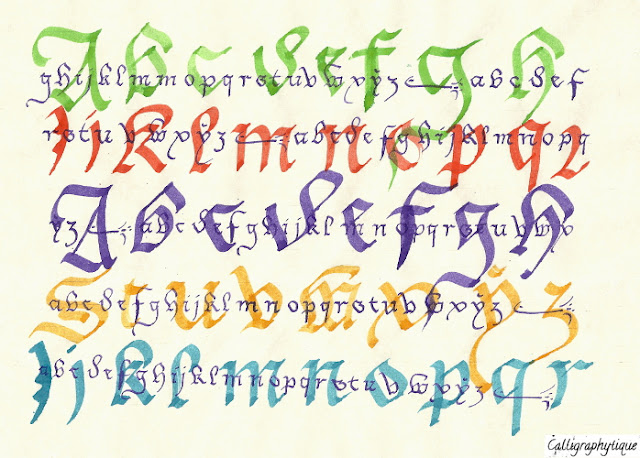 Abcdefgh
ghijklmnopqrstuvwxÿz abcdef
IjKlmnopqr
rstuvwxÿz abcdefghijklmnopq
Abcdefgh
ÿz abcdefghijklmnopqrstuvwx
Stuvwxÿz
abcdefghijklmnopqrstuvwxÿz
IjKlmnopqr
abcdefghijklmnopqrstuvwxÿz
Calligraphytique